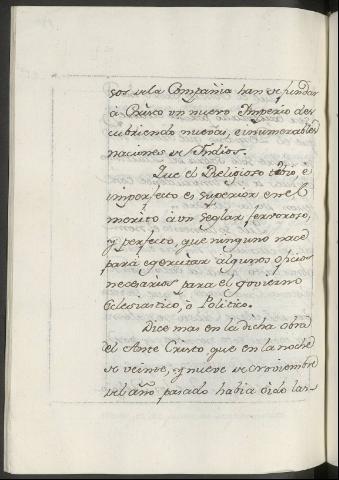 sos de la Compañia han de fundar
à Cristo un nuevo Imperio des
cubriendo nuevas, e inumerables
naciones de Indios.
Que el Religioso tibio, è
imperfecto es superior en el
merito à un seglar fervoroso,
y perfecto, que ninguno nace
para egercitar algunos oficios
necesarios para el govierno
Eclesiastico, ò Politico.
Dice mas en la dicha obra
del Ante Cristo que en la noche
de veinte, y nueve de noviembre
del año pasado habia oido las-